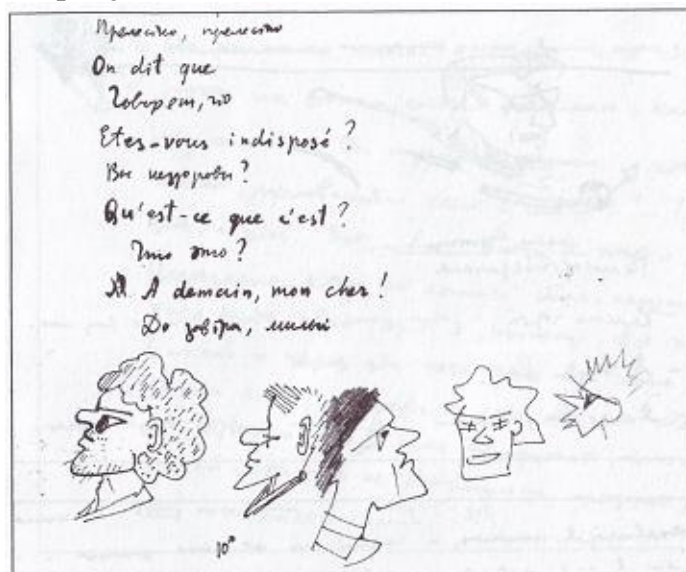 Прелестно, прелестно
On dit que
Говорят, что
Etes-vous indisposé ?
Вы нездоровы?
Qu'est-ce que c'est ?
Что это?
A demain, mon cher !
До завтра, милый
10